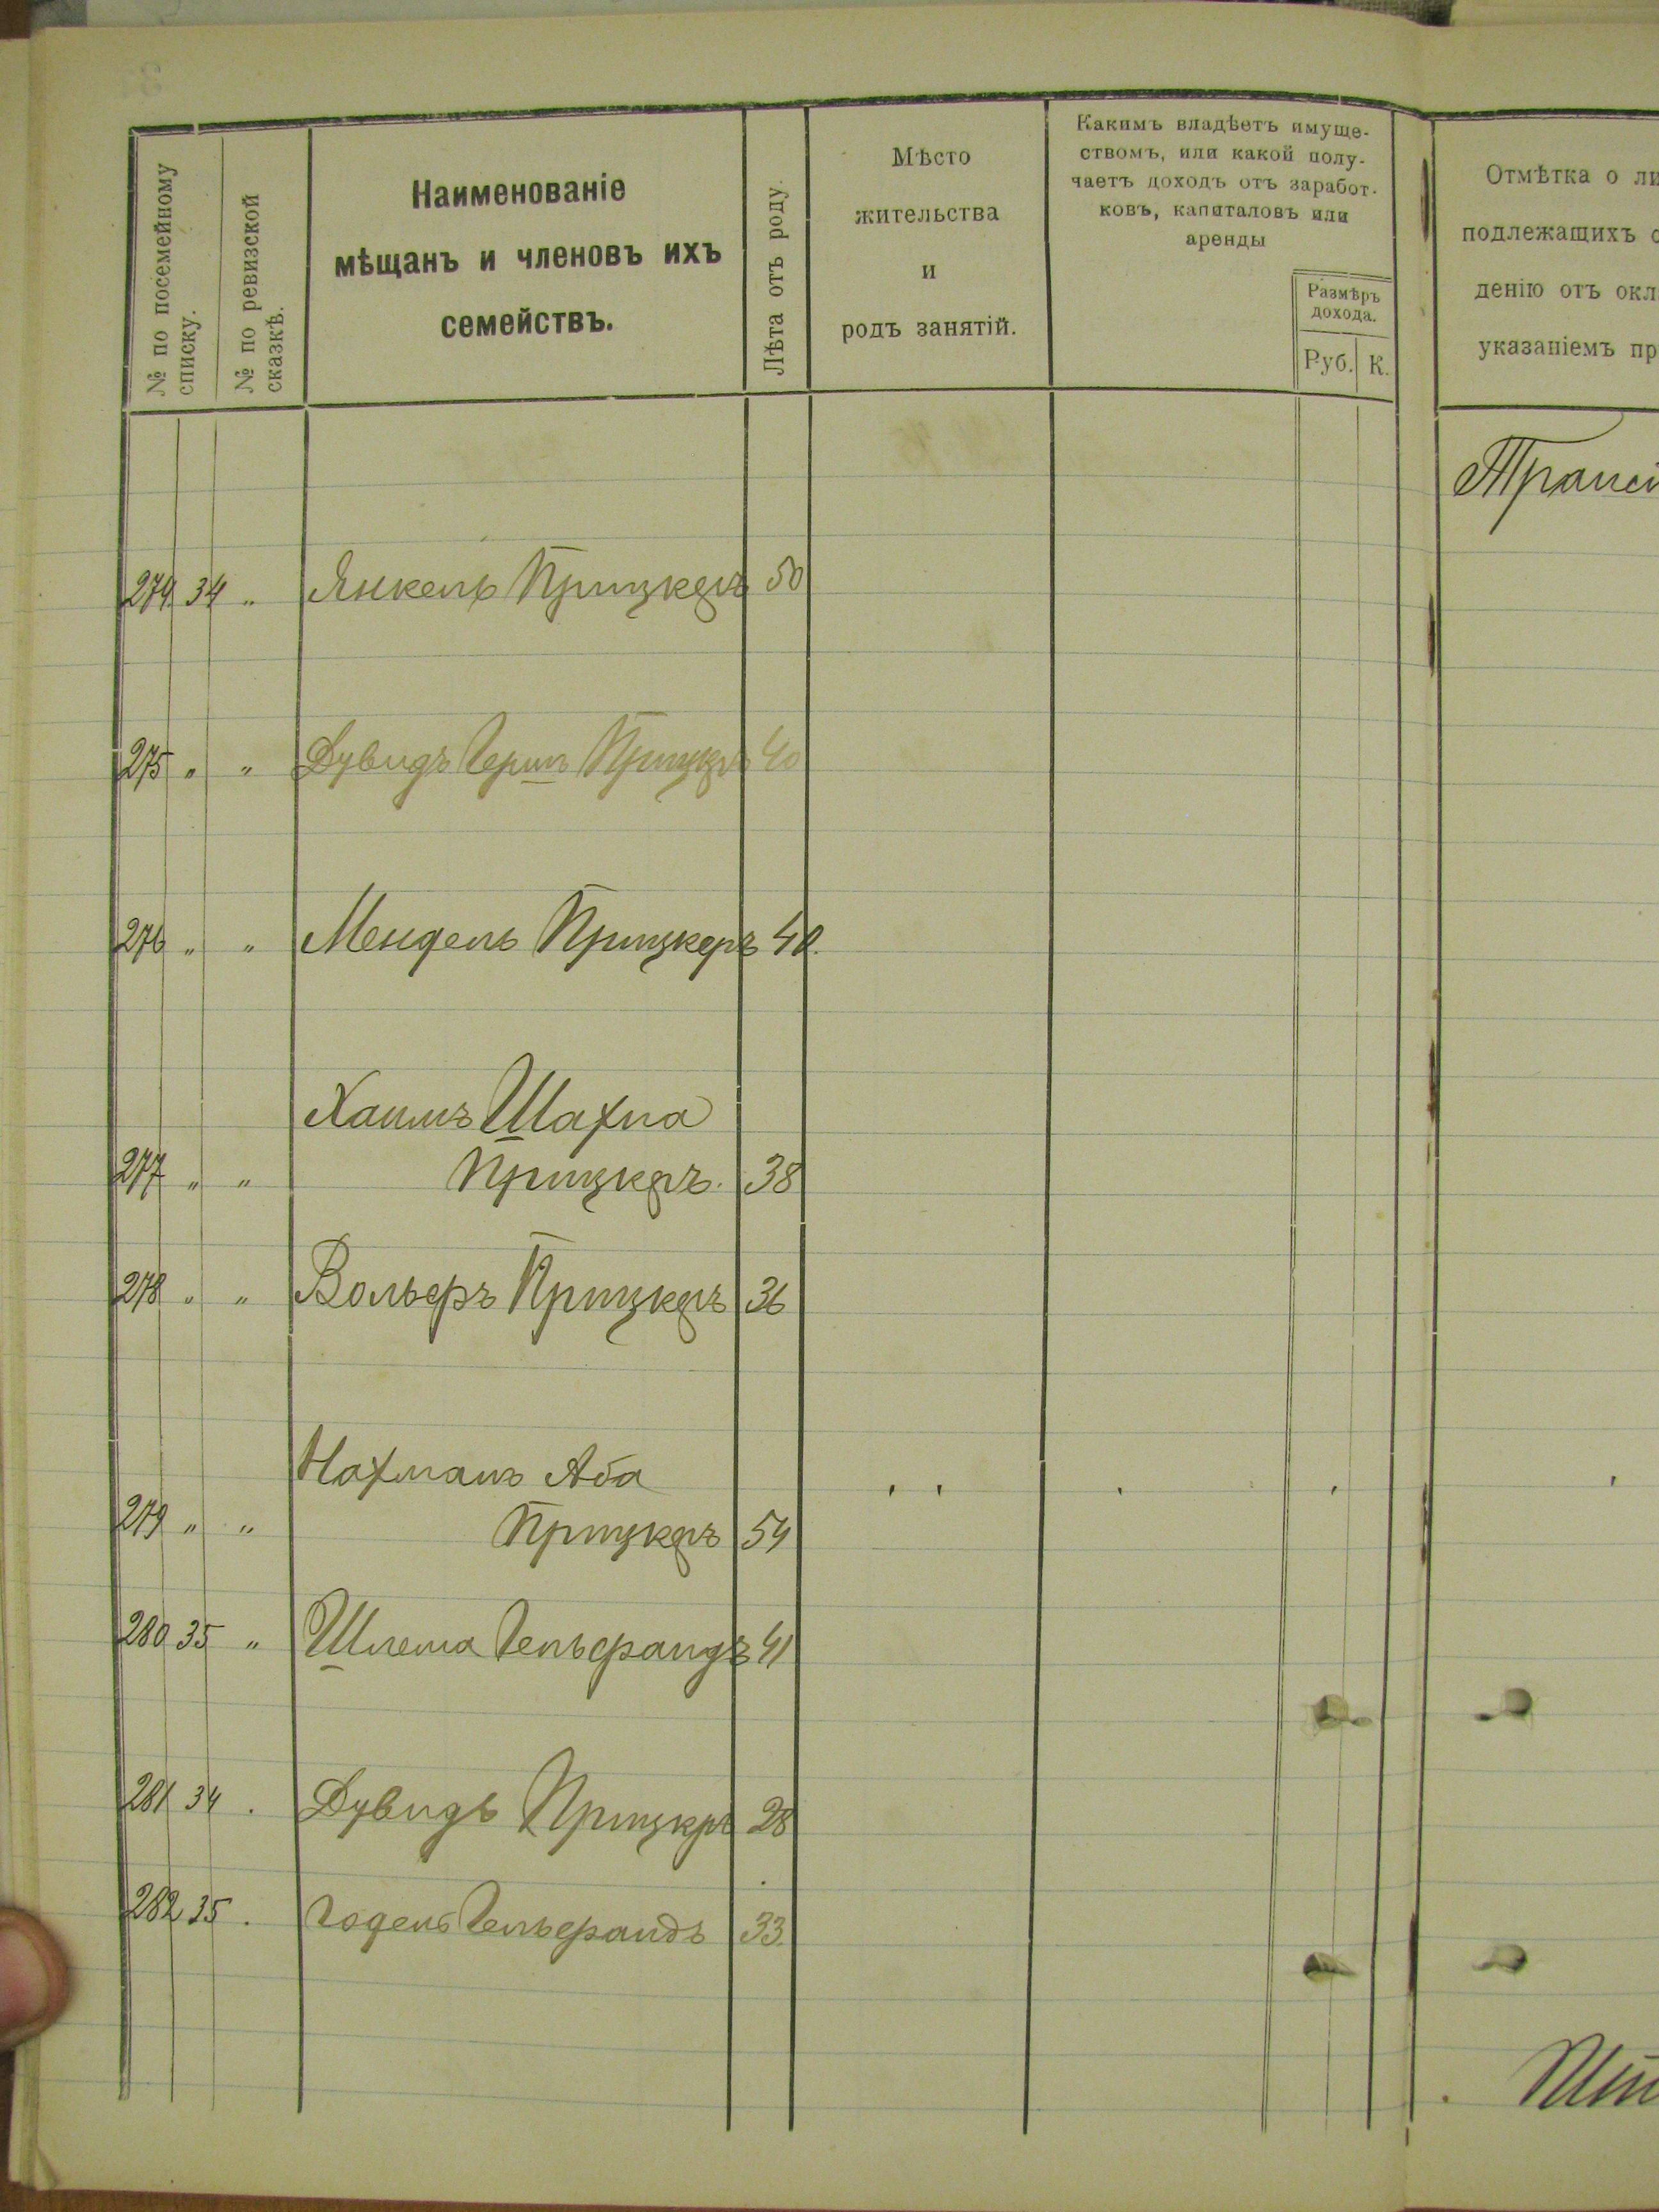 № по посемейному
списку.
№ по ревизской
сказкѣ.
Наименованіе
мѣщанъ и членовъ ихъ
семействъ.
Лѣта отъ роду.
Мѣсто
жительства
и
родъ занятій.
Какимъ владѣетъ имуще-
ствомъ, или какой полу-
чаетъ доходъ отъ заработ-
ковъ, капиталовъ или
аренды
Размѣръ
дохода.
Руб. К.
Отмѣтка о ли
подлежащихъ о
денію отъ окл
указаніемъ пр
Транси
274 34 „ Янкель Прицкеръ 50
275 „ „ Дувидъ Гершъ Прицкръ 40
276 „ „ Мендель Прицкеръ 40.
Хаимъ Шахна
277 „ „ Прицкеръ. 38
278 „ „ Вольфъ Прицкеръ 36
Нахманъ Аба
279 „ „ Прицкеръ 54
280 35 „ Шлема Гельфандъ 41
281 34 . Дувидъ Прицкръ 28
282 35 . Годель Гельфандъ 33.